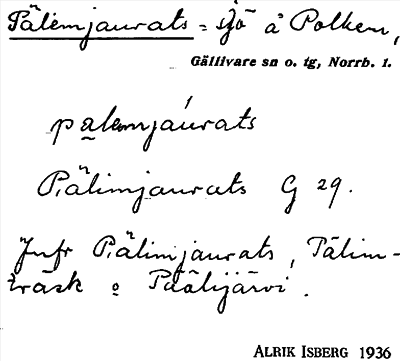 Pälemjaurats = sjö å Polken,
Gällivare sn o. tg, Norrb. l.
palemjaurats
Piälimjaurats G 29.
Jnfr Piälimjaurats, Pälim-
träsk o Päälijärvi.
ALRIK ISBERG 1936